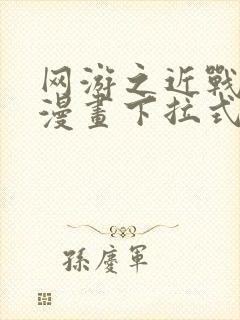 网游之近戰
漫畫下拉式
孫慶軍